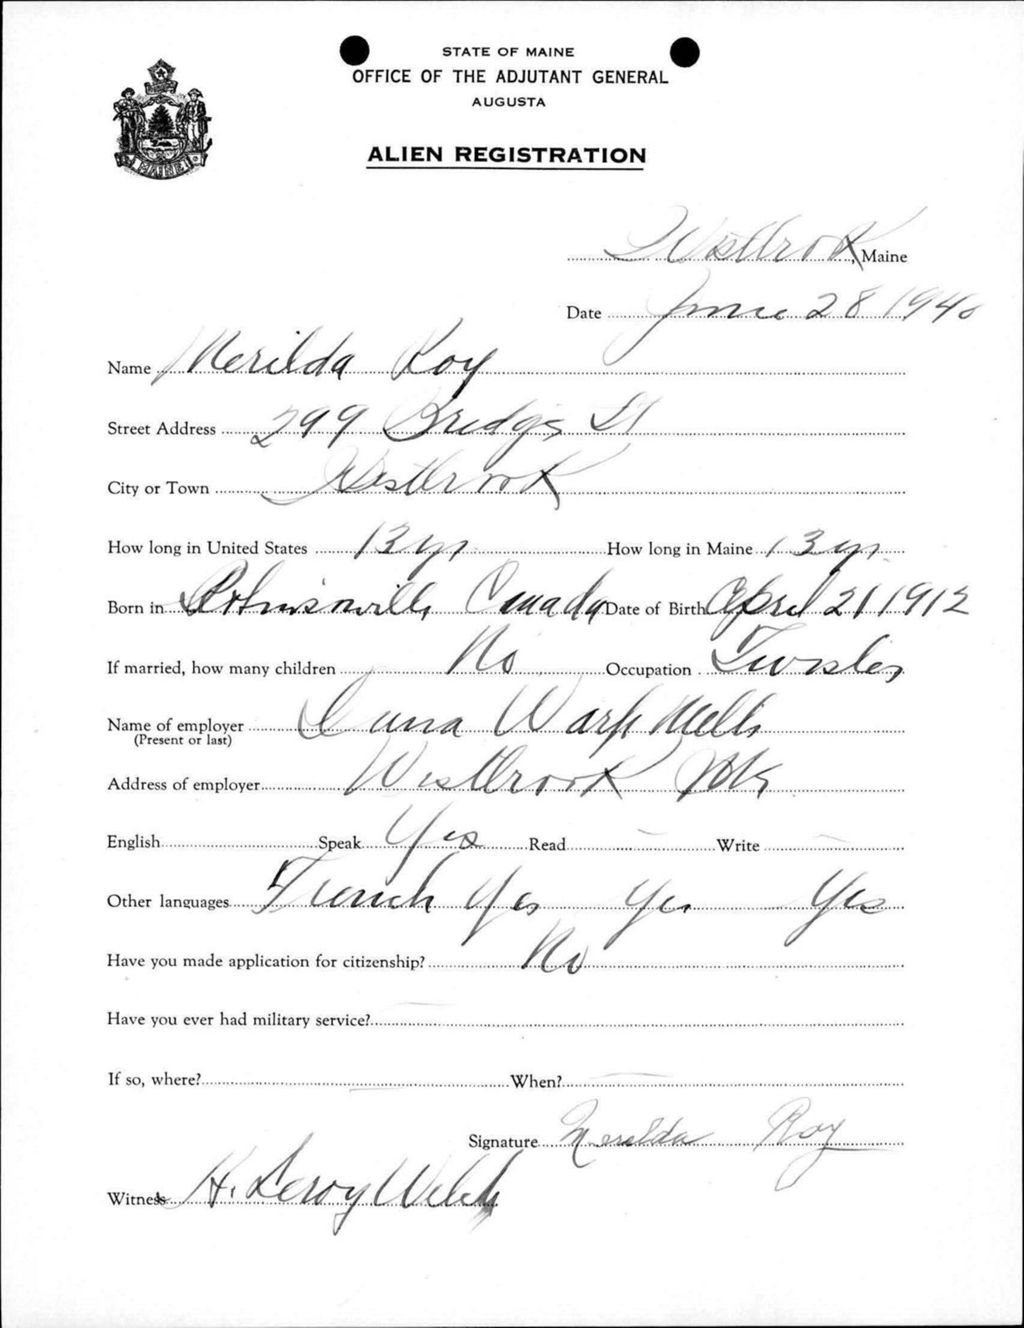 STATE OF MAINE
OFFICE OF THE ADJUTANT GENERAL
AUGUSTA
ALIEN REGISTRATION
Westbrook, Maine
Date June 28 1940
Name Merilda Roy
Street Address 299 Bridge St
City or Town Westbrook
How long in United States 13 yr How long in Maine 13 yr
Born in Robinsonville, Canada Date of Birth April 21 1912
If married, how many children No Occupation Twister
Name of employer Dana Warp Mills
(Present or last)
Address of employer Westbrook Me
English Speak Yes Read - Write -
Other languages French Yes Yes Yes
Have you made application for citizenship? No
Have you ever had military service?
If so, where? When?
Signature Merilda Roy
Witness H. Leroy Welch